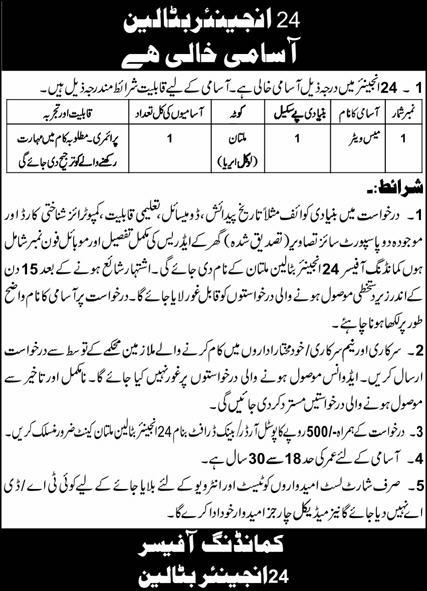 24 انجینئر بٹالین
آسامی خالی ہے
1 ۔ 24 انجینئر میں درجہ ذیل آسامی خالی ہے۔ آسامی کے لیے قابلیت شرائط مندرجہ ذیل ہیں۔
نمبر شمار آسامی کا نام بنیادی پے سکیل کوٹہ آسامیوں کی کل تعداد قابلیت اور تجربہ
1 میس ویٹر 1 ملتان (لوکل ایریا) 1 پرائمری۔ مطلوبہ کام میں مہارت
رکھنے والے کو ترجیح دی جائے گی
شرائط:۔
1۔ درخواست میں بنیادی کوائف مثلاً تاریخ پیدائش، ڈومیسائل، تعلیمی قابلیت، کمپیوٹرائز شناختی کارڈ اور
موجودہ دو پاسپورٹ سائز تصاویر (تصدیق شدہ) گھر کے ایڈریس کی مکمل تفصیل اور موبائل فون نمبر شامل
ہوں کمانڈنگ آفیسر 24 انجینئر بٹالین ملتان کے نام دی جائے گی۔ اشتہار شائع ہونے کے بعد 15 دن
کے اندر زیر دستخطی موصول ہونے والی درخواستوں کو قابل غور لایا جائے گا۔ درخواست پر آسامی کا نام واضح
طور پر لکھا ہونا چاہئے۔
2۔ سرکاری اور نیم سرکاری/خودمختار اداروں میں کام کرنے والے ملازمین محکمے کے توسط سے درخواست
ارسال کریں۔ ایڈوانس موصول ہونے والی درخواستوں پر غور نہیں کیا جائے گا۔ نامکمل اور تاخیر سے
موصول ہونے والی درخواستیں مسترد کر دی جائیں گی۔
3۔ درخواست کے ہمراہ -/500 روپے کا پوسٹل آرڈر/بینک ڈرافٹ بنام 24 انجینئر بٹالین ملتان کینٹ ضرور منسلک کریں۔
4۔ آسامی کے لئے عمر کی حد 18 سے 30 سال ہے۔
5۔ صرف شارٹ لسٹ امیدواروں کو ٹیسٹ اور انٹرویو کے لئے بلایا جائے گا جس کے لیے کوئی ٹی اے/ڈی
اے نہیں دیا جائے گا نیز میڈیکل چارجز امیدوار خود ادا کرے گا۔
کمانڈنگ آفیسر
24 انجینئر بٹالین